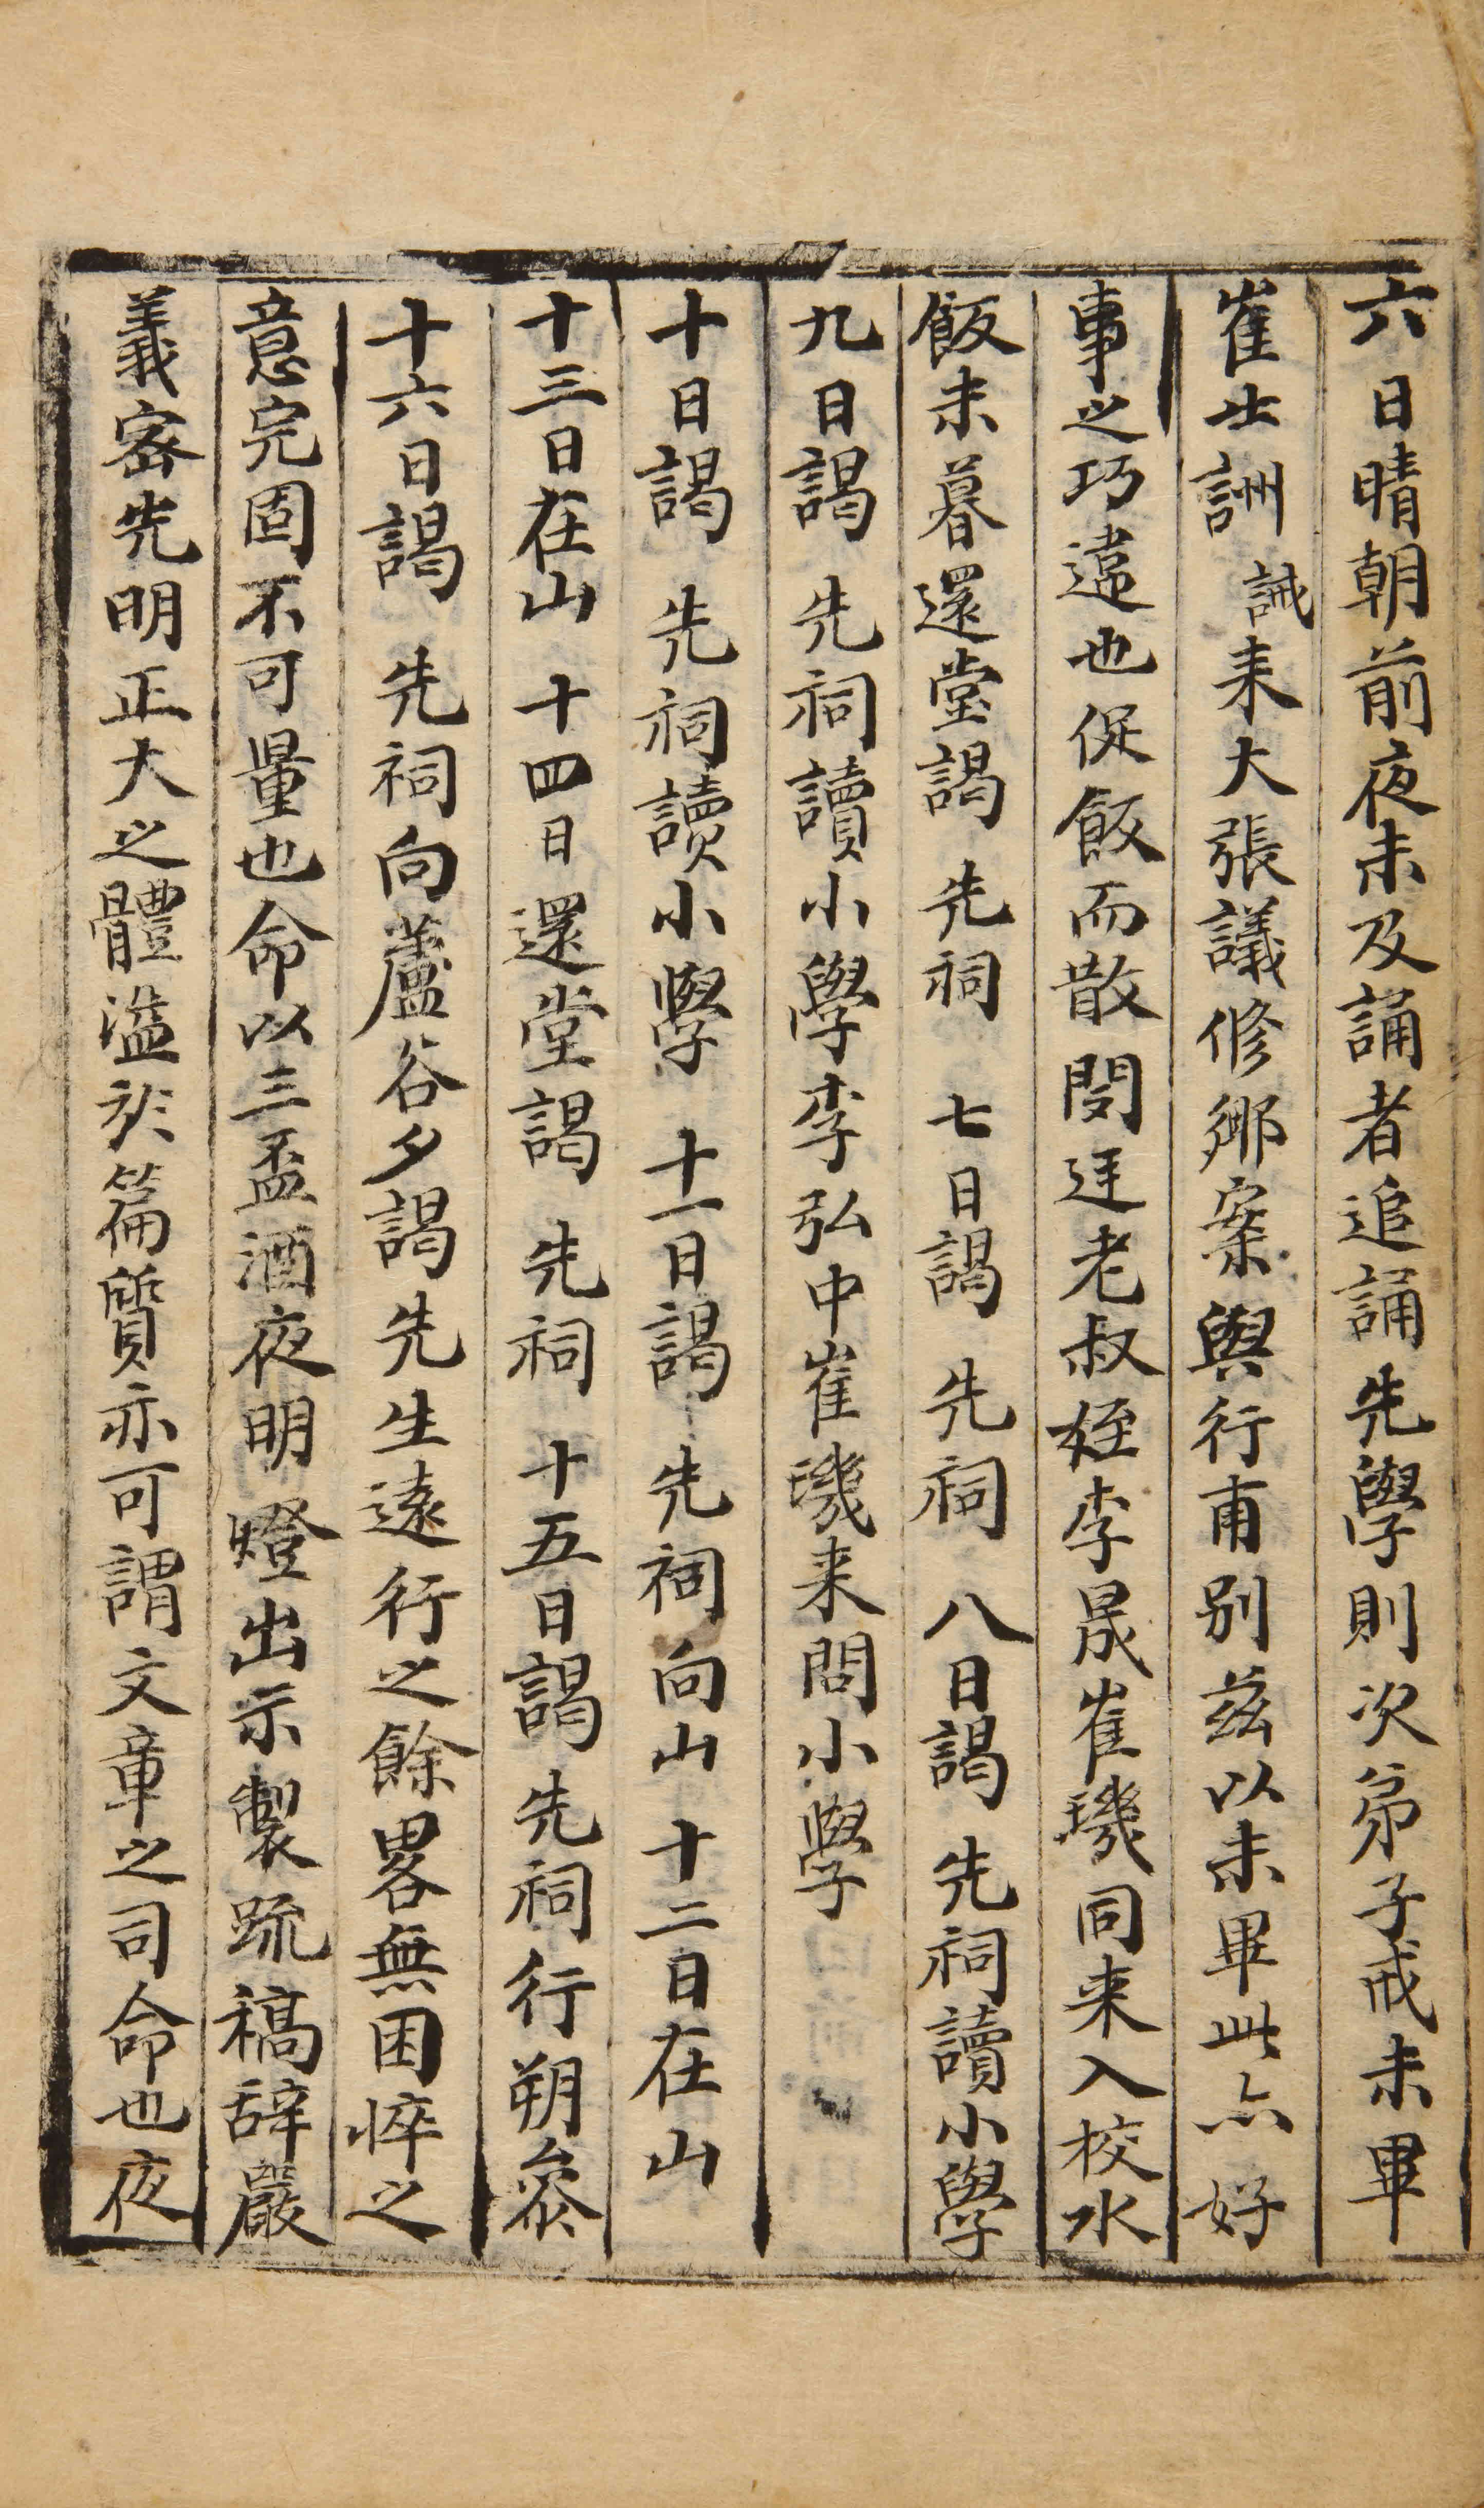 六日晴朝前夜未及誦者追誦先學則次弟子戒未畢
崔士詶誠来大張議修鄕案與行甫别玆以未畢此亦好
事之巧違也促飯而散閔迋老叔姪李晟崔璣同来入校水
飯未暮還堂謁 先祠 七日謁 先祠 八日謁 先祠讀小學
九日謁 先祠讀小學李弘中崔璣来問小學
十日謁 先祠讀小學 十一日謁 先祠向山 十二日在山
十三日在山 十四日還堂謁 先祠 十五日謁 先祠行朔叅
十六日謁 先祠向蘆谷夕謁先生遠行之餘畧無困悴之
意完固不可量也命以三盃酒夜明燈出示製疏稿辞嚴
義密光明正大之體溢於篇質亦可謂文章之司命也夜